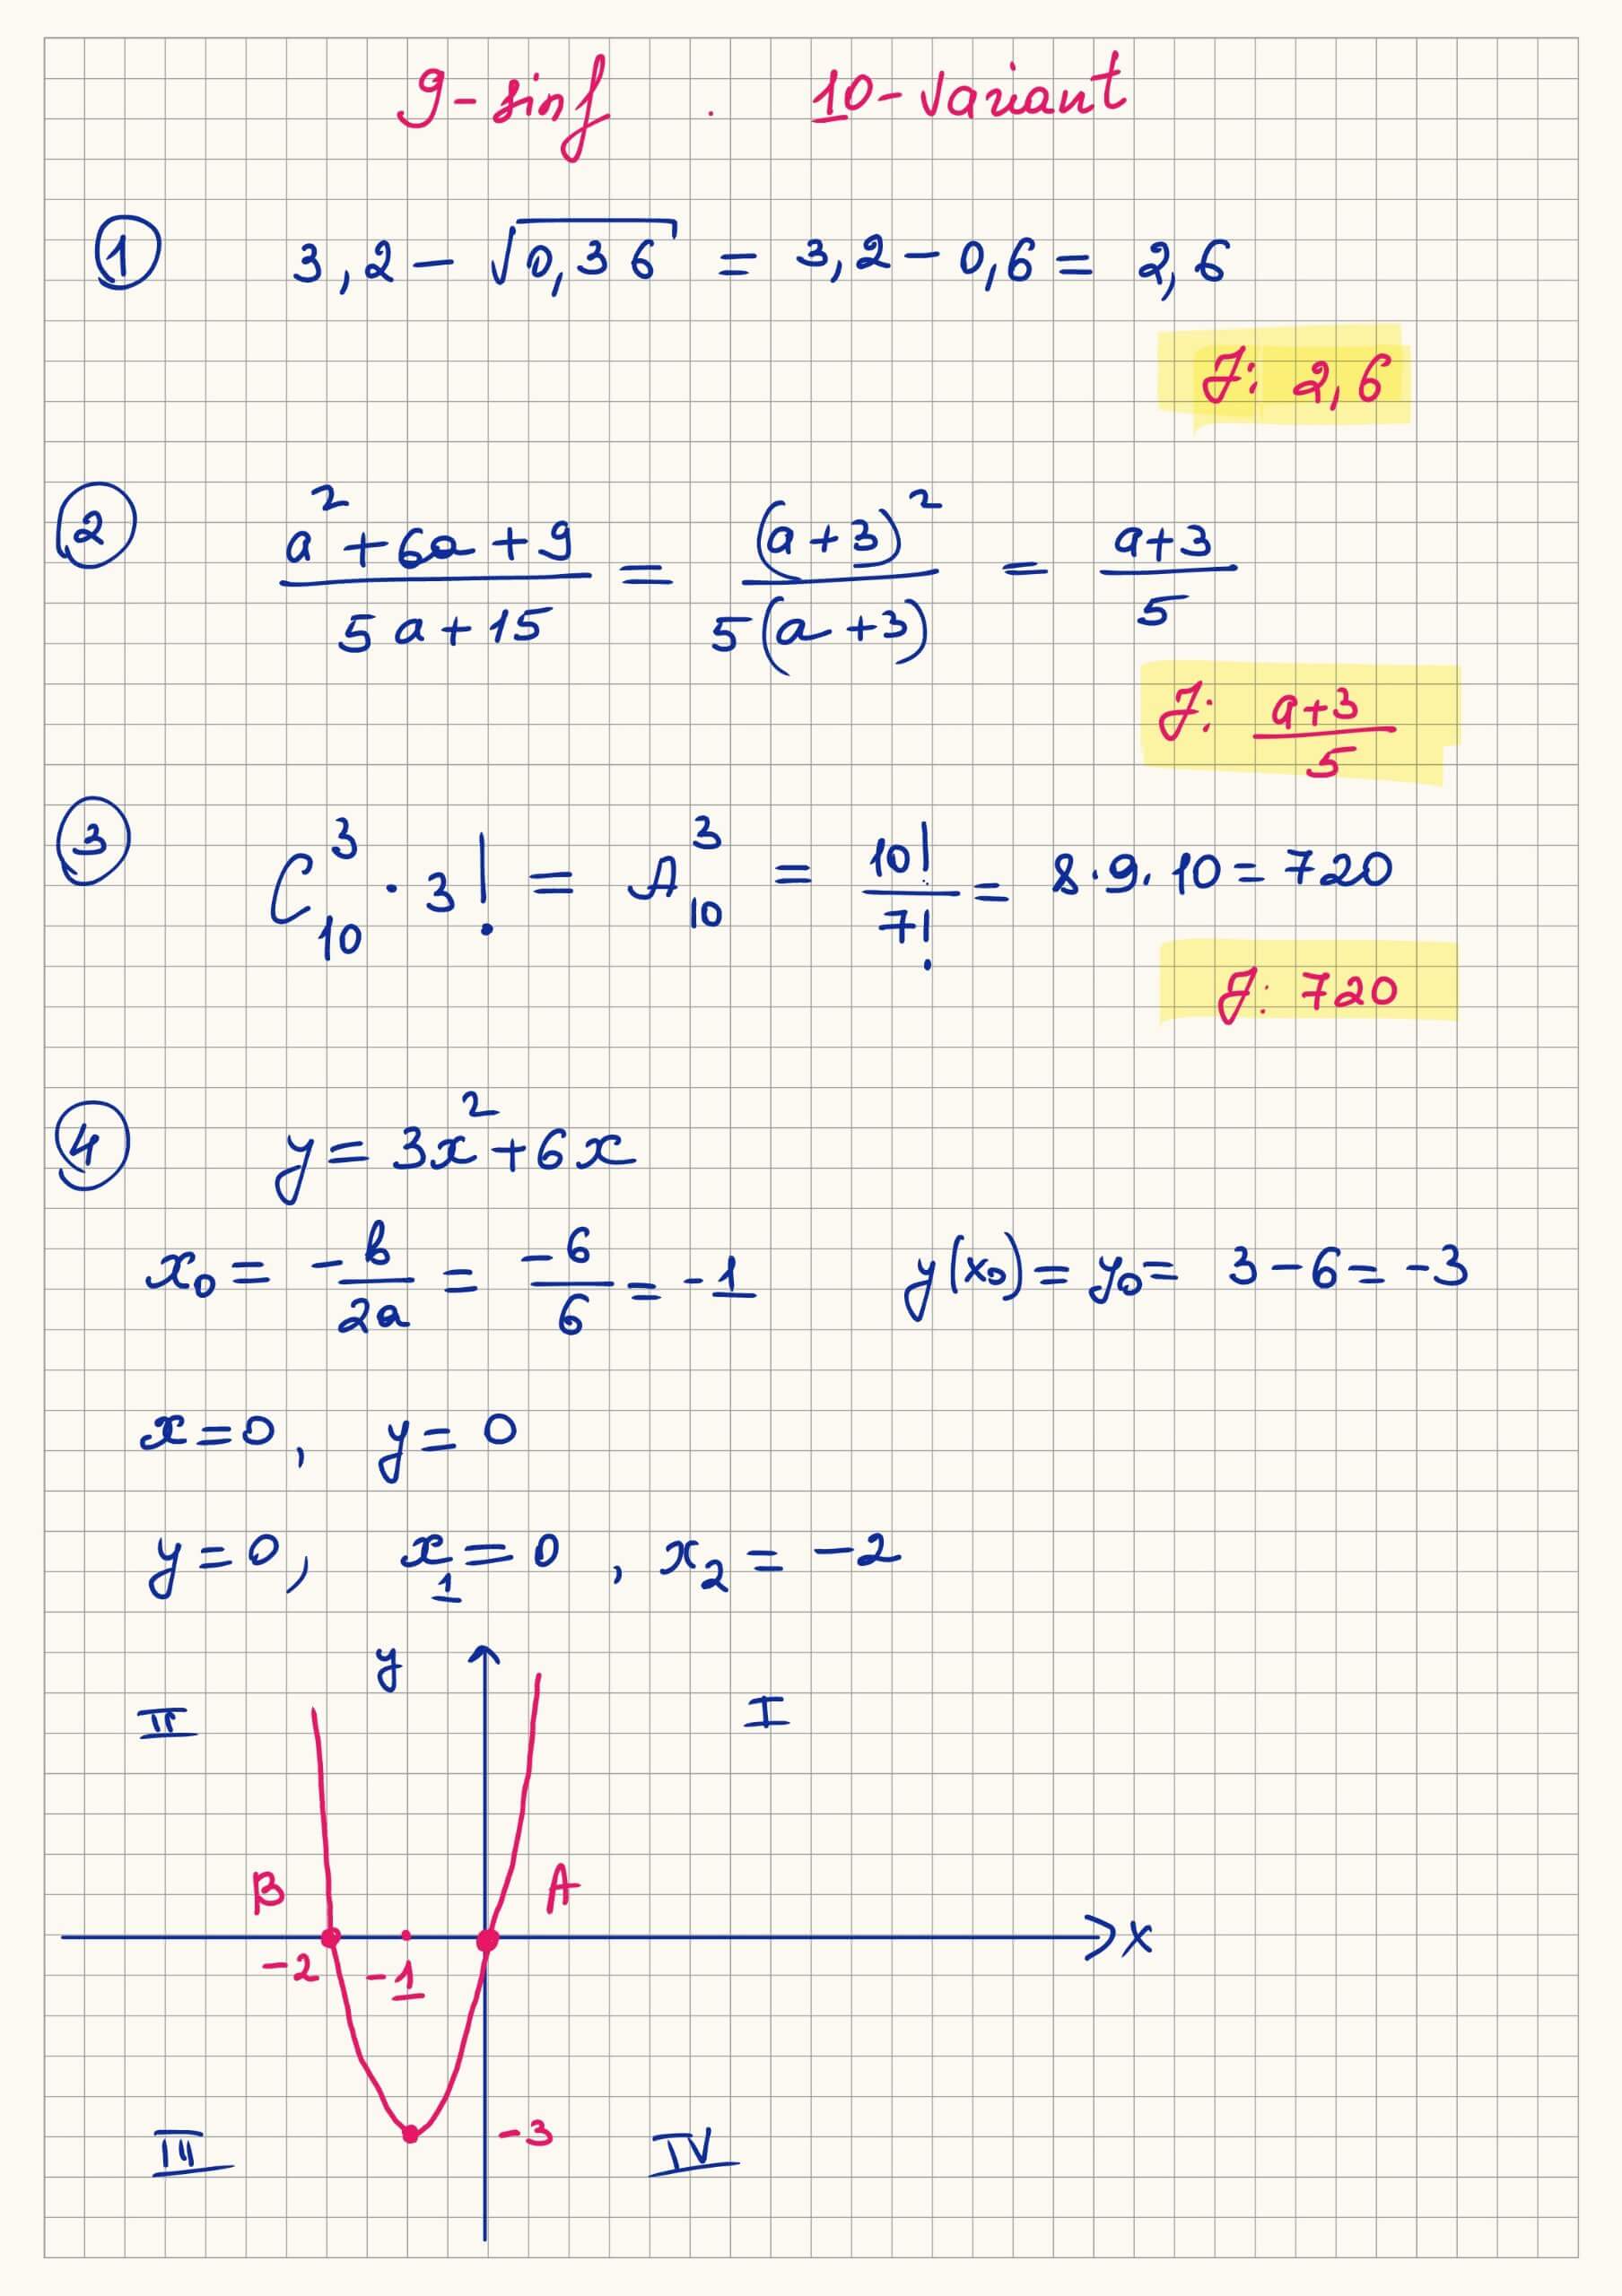 9-sinf . 10-variant
① 3,2 − √0,36 = 3,2 − 0,6 = 2,6
J: 2,6
② (a² + 6a + 9)/(5a + 15) = (a + 3)²/(5(a + 3)) = (a+3)/5
J: (a+3)/5
③ C₁₀³ · 3! = A₁₀³ = 10!/7! = 8·9·10 = 720
J: 720
④ y = 3x² + 6x
x₀ = −b/2a = −6/6 = −1 y(x₀) = y₀ = 3 − 6 = −3
x = 0, y = 0
y = 0, x₁ = 0, x₂ = −2
y
II I
B A
x
−2 −1
−3
III IV